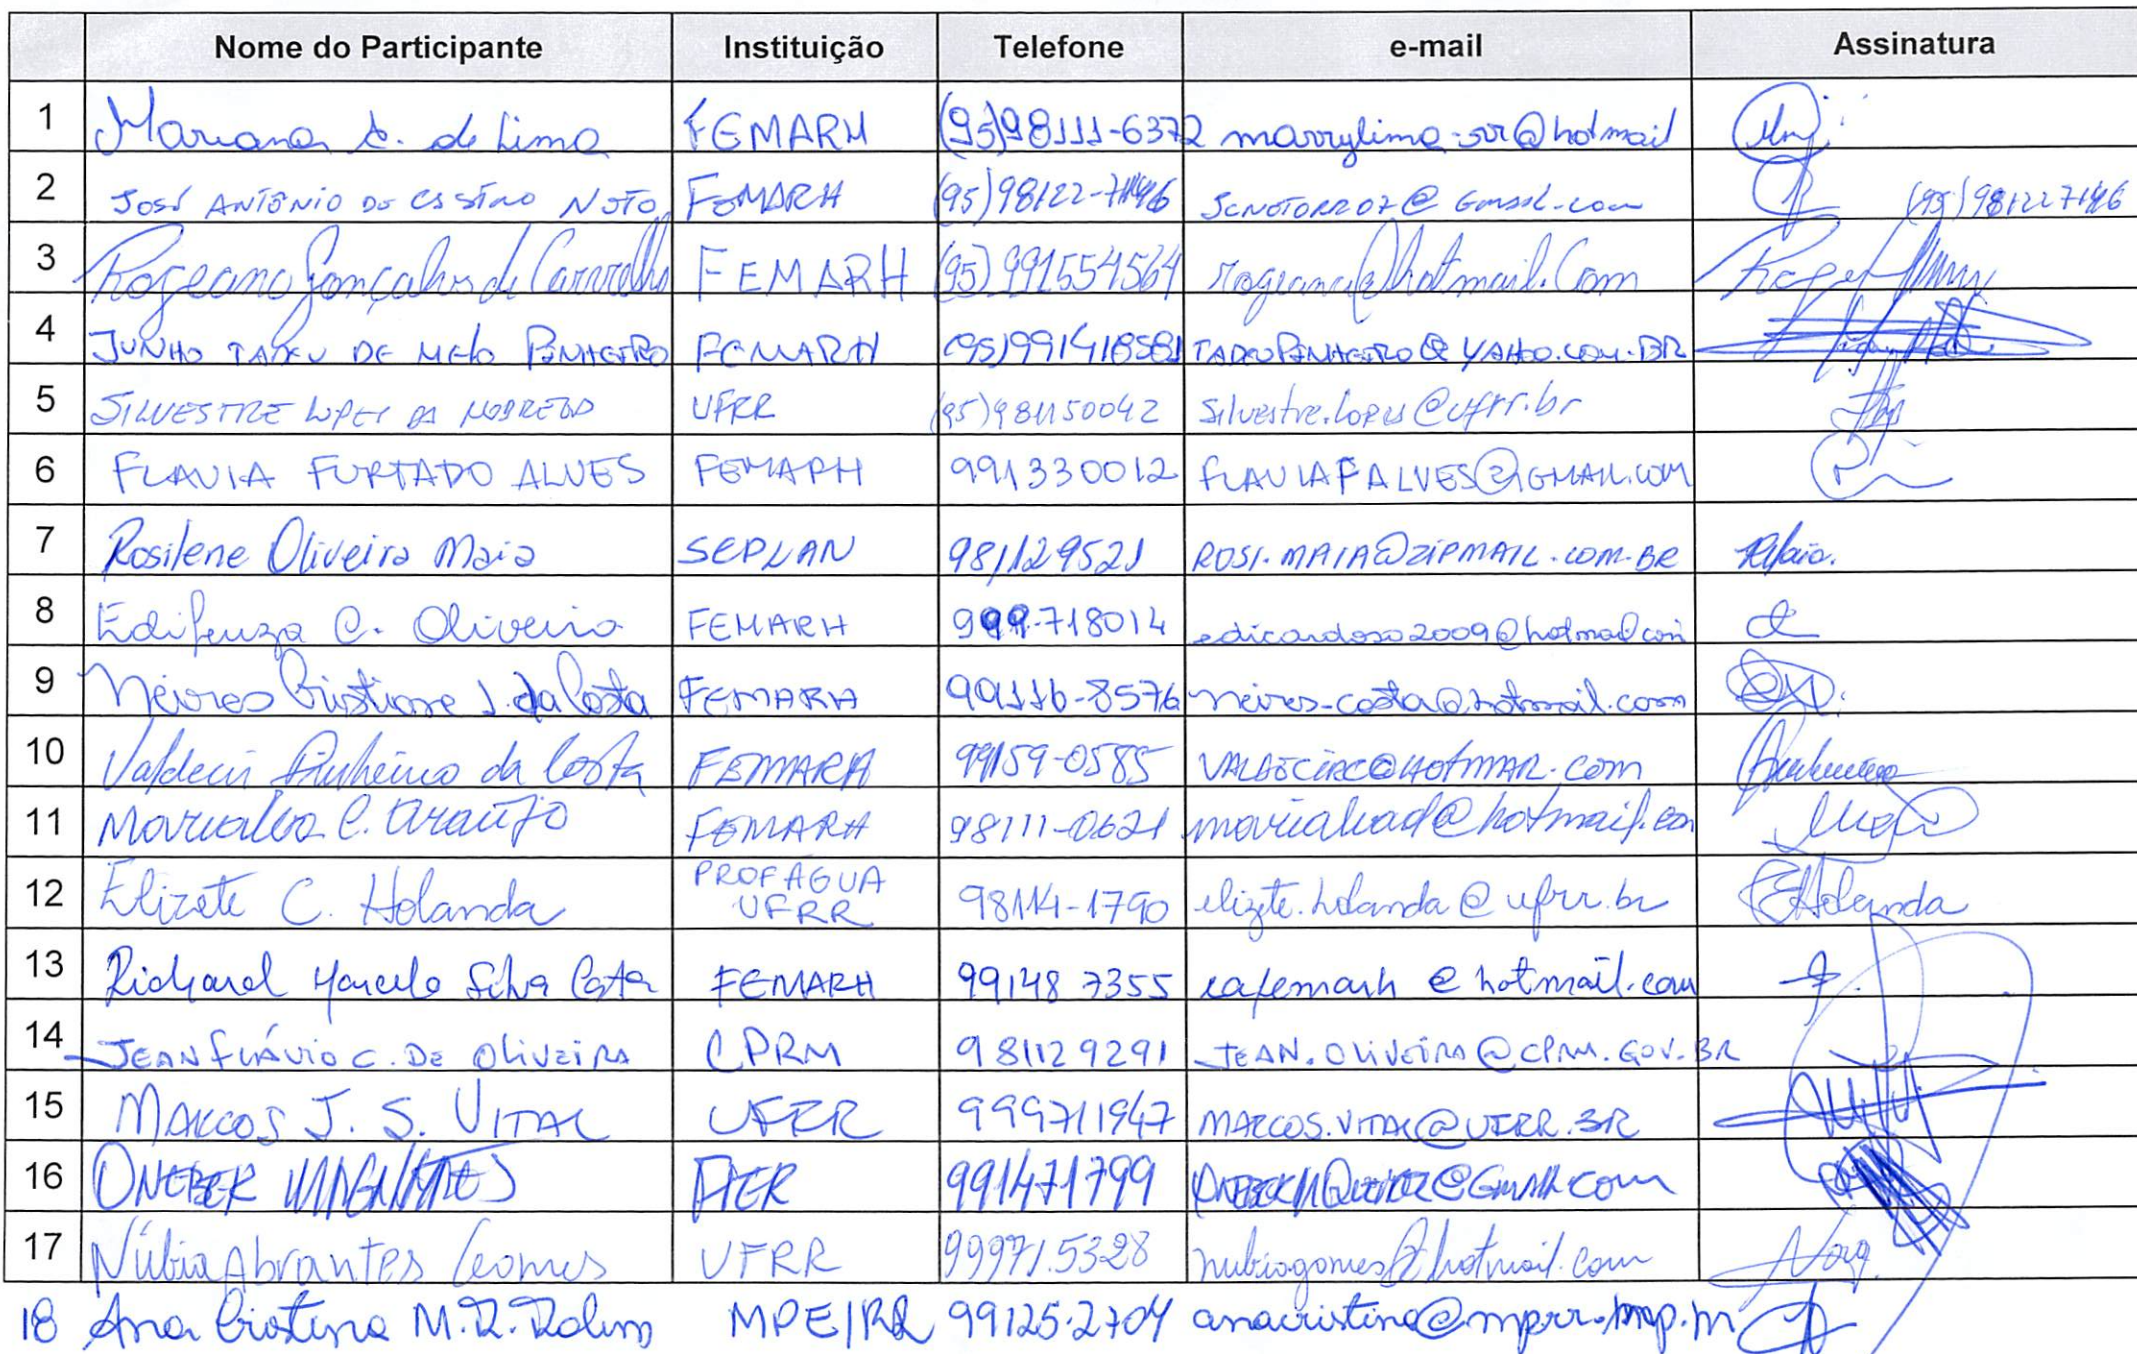 Nome do Participante Instituição Telefone e-mail Assinatura
1 Mariana C. de Lima FEMARH (95)98111-6372 marrylima-rr@hotmail
2 JOSÉ ANTÔNIO DE CASTRO NETO FEMARH (95)98122-7146 (95)981227146
3 Rogeano Gonçalves de Carvalho FEMARH (95)991554564 rogeano@hotmail.Com
4 JUNHO TADEU DE MELO PINHEIRO FEMARH (95)991418581 TADEUPINHEIRO@YAHOO.COM.BR
5 SILVESTRE LOPES DA NOBREGA UFRR (95)981150042 silvestre.lopes@ufrr.br
6 FLAVIA FURTADO ALVES FEMARH 991330012 FLAVIAFALVES@GMAIL.COM
7 Rosilene Oliveira Maia SEPLAN 981129521 ROSI.MAIA@ZIPMAIL.COM.BR RMaia.
8 Edileuza C. Oliveira FEMARH 999718014 edicardoso2009@hotmail.com
9 Neires Cristiane J. da Costa FEMARH 99116-8576 neires-costa@hotmail.com
10 Valdecir Pinheiro da Costa FEMARH 99159-0585 VALDECIRC@HOTMAIL.COM
11 Marialva C. Araújo FEMARH 98111-0621 marialvad@hotmail.com
12 Elizete C. Holanda PROFÁGUA UFRR 98114-1790 elizete.holanda@ufrr.br EHolanda
13 Richard Marcelo Silva Costa FEMARH 99148 7355 cafemarh@hotmail.com
14 JEAN FLÁVIO C. DE OLIVEIRA CPRM 981129291 JEAN.OLIVEIRA@CPRM.GOV.BR
15 MARCOS J. S. VITAL UFRR 999711947 MARCOS.VITAL@UFRR.BR
16 ONEBER MAGALHÃES FIER 991471799
17 Núbia Abrantes Gomes UFRR 99971.5328 nubiagomes@hotmail.com Nag.
18 Ana Cristina M.R. Rolim MPE/RR 99125-2704